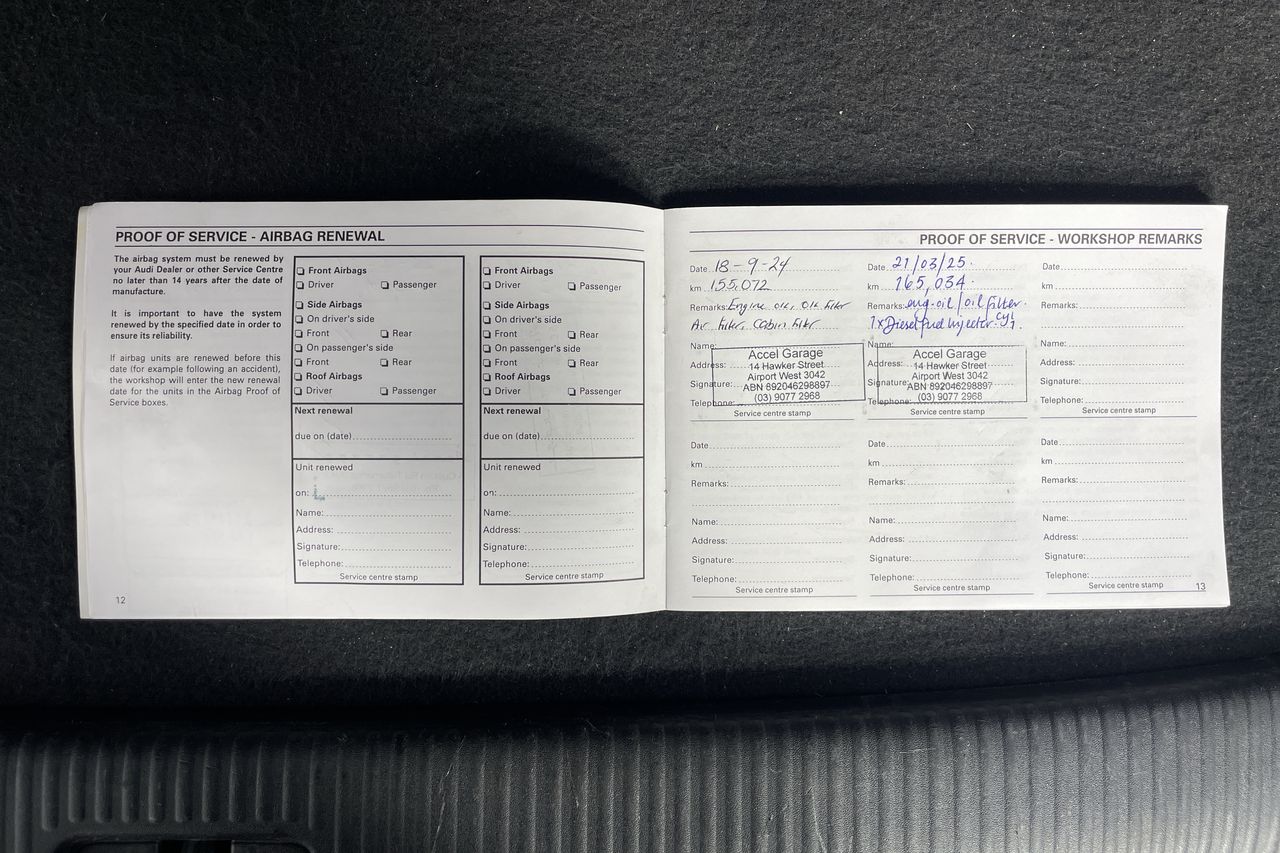 PROOF OF SERVICE - AIRBAG RENEWAL
The airbag system must be renewed by
your Audi Dealer or other Service Centre
no later than 14 years after the date of
manufacture.
It is important to have the system
renewed by the specified date in order to
ensure its reliability.
If airbag units are renewed before this
date (for example following an accident),
the workshop will enter the new renewal
date for the units in the Airbag Proof of
Service boxes.
12
Front Airbags
Driver Passenger
Side Airbags
On driver's side
Front Rear
On passenger's side
Front Rear
Roof Airbags
Driver Passenger
Next renewal
due on (date)
Unit renewed
on:
Name:
Address:
Signature:
Telephone:
Service centre stamp
Front Airbags
Driver Passenger
Side Airbags
On driver's side
Front Rear
On passenger's side
Front Rear
Roof Airbags
Driver Passenger
Next renewal
due on (date)
Unit renewed
on:
Name:
Address:
Signature:
Telephone:
Service centre stamp
PROOF OF SERVICE - WORKSHOP REMARKS
Date 18-9-24
km 155.072
Remarks: Engine oil, Oil filter
Air filter, Cabin filter
Name:
Accel Garage
Address: 14 Hawker Street
Airport West 3042
Signature: ABN 892046298897
Telephone: (03) 9077 2968
Service centre stamp
Date 21/03/25.
km 165,034
Remarks: eng.oil/oil filter.
1xDiesel fuel Injector. Cyl 1.
Name:
Accel Garage
Address: 14 Hawker Street
Airport West 3042
Signature: ABN 892046298897
Telephone: (03) 9077 2968
Service centre stamp
Date
km
Remarks:
Name:
Address:
Signature:
Telephone:
Service centre stamp
Date
km
Remarks:
Name:
Address:
Signature:
Telephone:
Service centre stamp
Date
km
Remarks:
Name:
Address:
Signature:
Telephone:
Service centre stamp
Date
km
Remarks:
Name:
Address:
Signature:
Telephone:
Service centre stamp
13